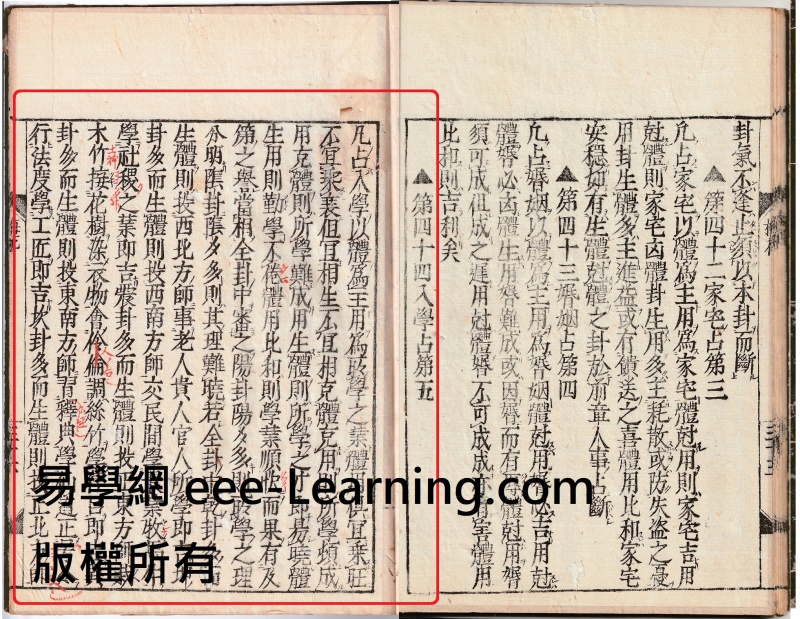 卦氣不逢正須以本卦而斷
▲第四十二家宅占第三
凢占家宅以體爲主用爲家宅體尅用則家宅吉用
尅體則家宅凶體卦生用多主耗散或防失盗之憂
用卦生體多主進益或有饋送之喜體用比和家宅
安穏如有生體尅體之卦於前章人事占斷
▲第四十三婚姻占第四
凢占婚姻以體爲主用爲婚姻體尅用婚必吉用尅
體婚必凶體生用婚難成或因婚而有體尅用婿
須可成但成之遲用尅體婚不可成成用害體用
比和則吉利矣
▲第四十四入學占第五
凡占入學以體爲主用爲所學之業體俱宜乗旺
不宜乘衰但宜相生不宜相克體克用所學頻成
用克體則所學難成用生體則所學之即易曉體
生用則勤學不倦體用比和則學業順從而果有及
第之與當相全卦中審之陽卦陽多則學之理
分明陰卦陰爻多則其理難曉若全卦乾卦多而
生體則投西北方師事老人貴人官人所學即
卦多而生體則投西南方師交民間學業
學社稷之業即吉震卦多而生體則投東方
木竹接花樹染衣物會修倫調絲竹學即
卦多而生體則投東南方師習釋典學道正
行法度學工匠即吉坎卦多而生體則投正北
易學網 eee-Learning.com
版權所有